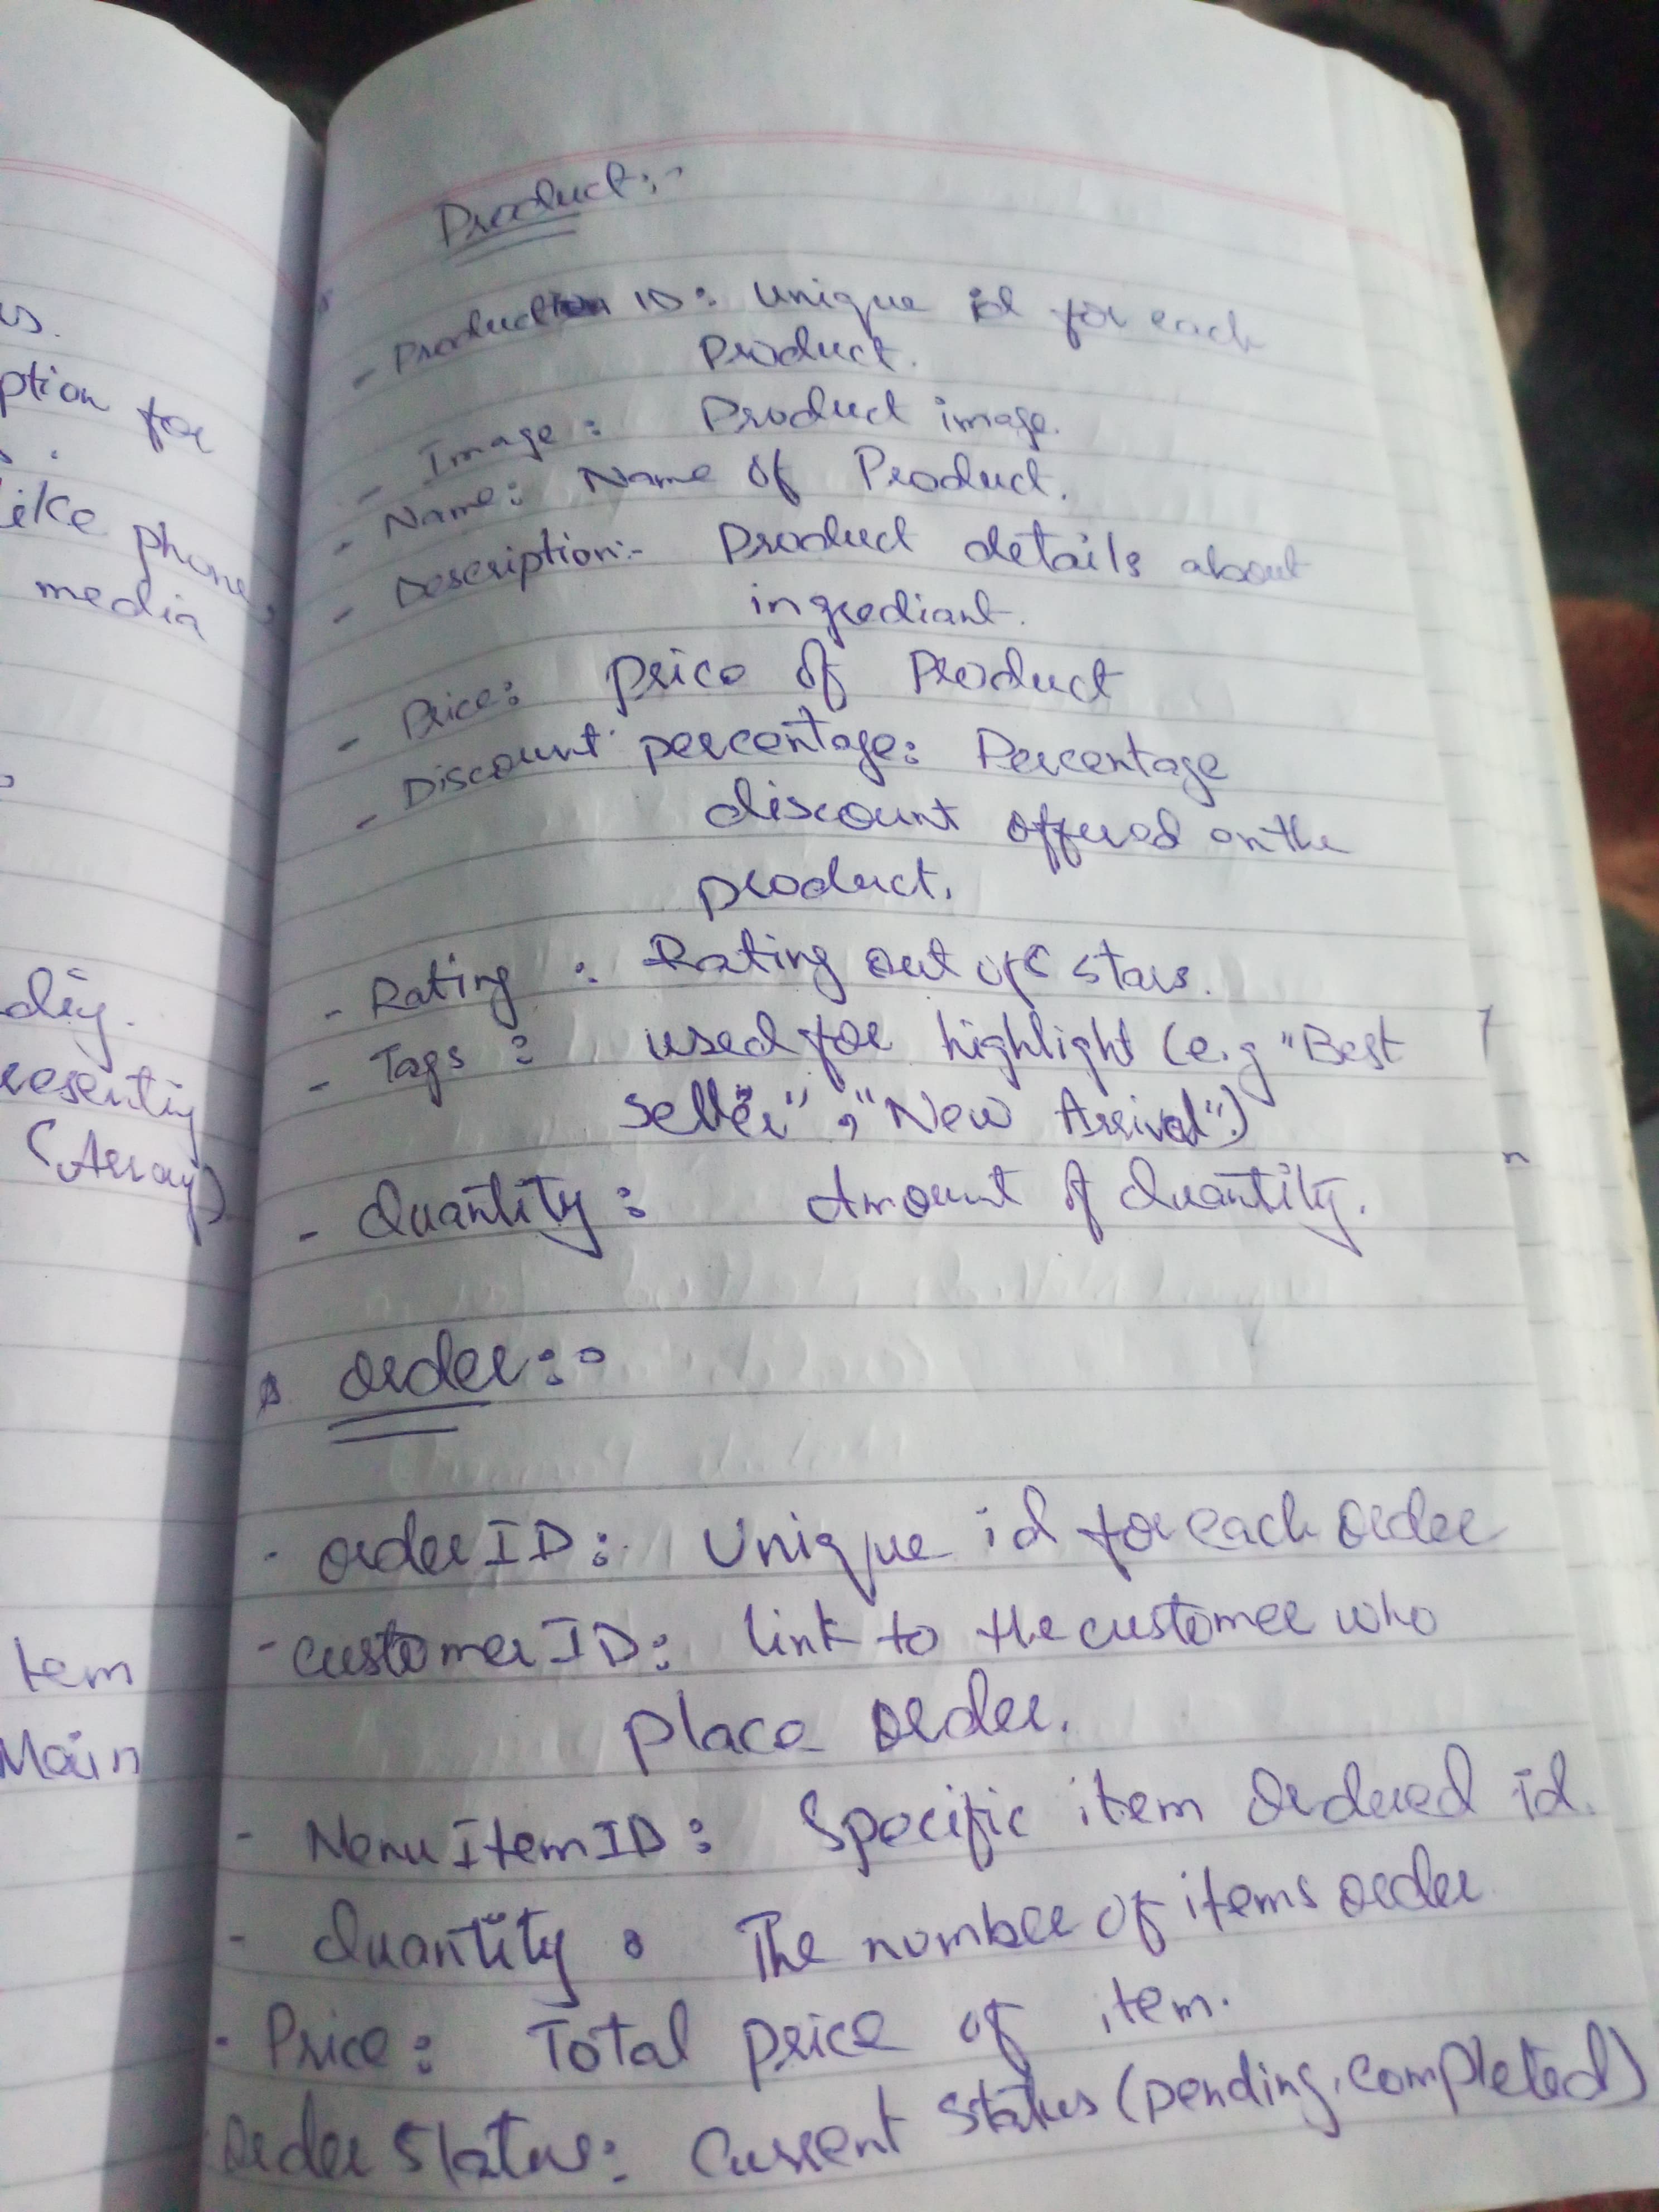 us.
ption for
s.
like phone,
media
dig.
resenting
(Array)
tem
Main
Product:-
- Product ID: Unique id for each
Product.
- Image: Product image.
- Name: Name of Product.
- Description:- Product details about
ingrediant.
- Price: Price of Product
- Discount percentage: Percentage
discount offered on the
product.
- Rating : Rating out of 5 stars.
- Tags : used for highlight (e.g "Best
seller", "New Arrival")
- Quantity : Amount of Quantity.
order:-
- orderID: Unique id for each order
- customerID: link to the customer who
place order.
- MenuItemID: Specific item Ordered id.
- Quantity : The number of items order
- Price: Total price of item.
order Status: Current Status (pending, completed)